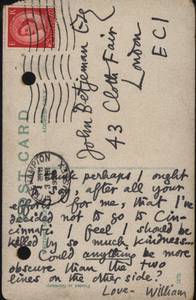 John Betjeman Esq
43 Cloth Fair
London
EC1
POST CARD
I think perhaps I ought
to say, after all your
efforts for me, that I've
decided not to go to Cin-
cinnati. I feel I should be
killed by so much kindness...
Could anything be more
obscure than the two
lines on the other side?
Love – William